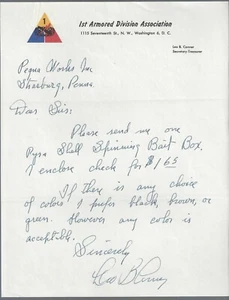 1
1st Armored Division Association
1115 Seventeenth St., N. W., Washington 6, D. C.
Leo B. Conner
Secretary Treasurer
Pequa Works Inc
Strasburg, Penna
Dear Sirs:
Please send me one
Pyra Shell Spinning Bait Box.
I enclose check for $1.65
If there is any choice
of colors I prefer black, brown, or
green. However any color is
acceptible.
Sincerely
Leo B Conner